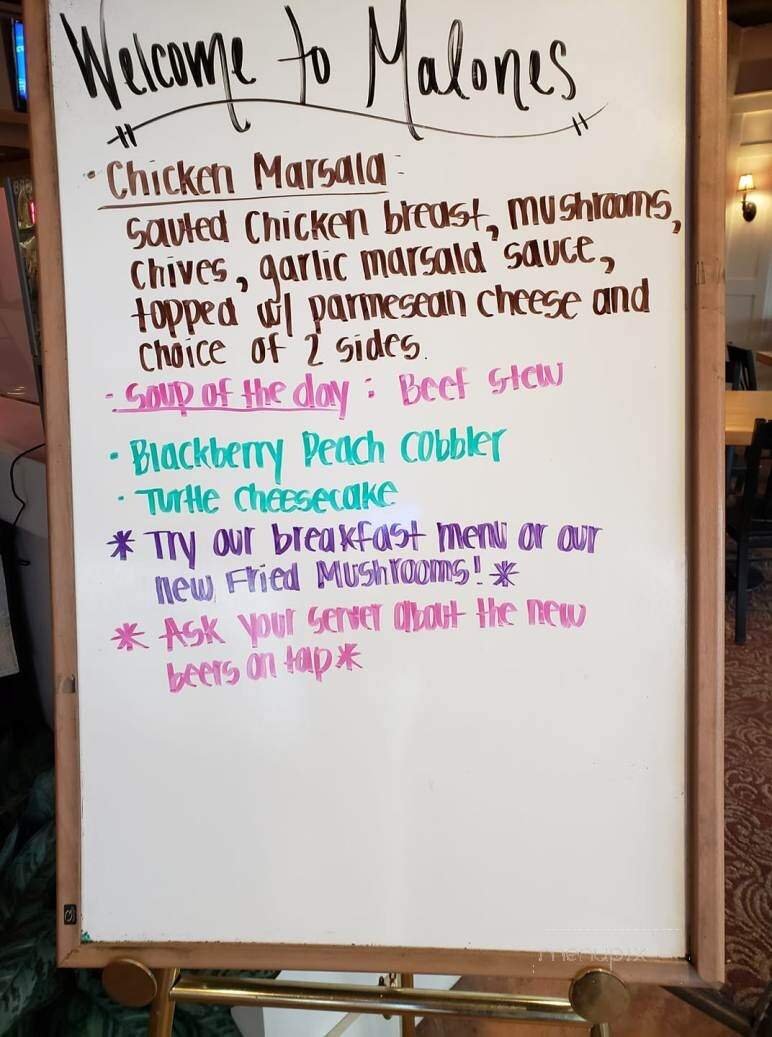 Welcome to Malones
· Chicken Marsala:
sauted Chicken breast, mushrooms,
chives, garlic marsala sauce,
topped w/ parmesean cheese and
choice of 2 sides.
· Soup of the day: Beef stew
· Blackberry Peach cobbler
· Turtle cheesecake
* Try our breakfast menu or our
new Fried Mushrooms! *
* Ask your server about the new
beers on tap *
menupix